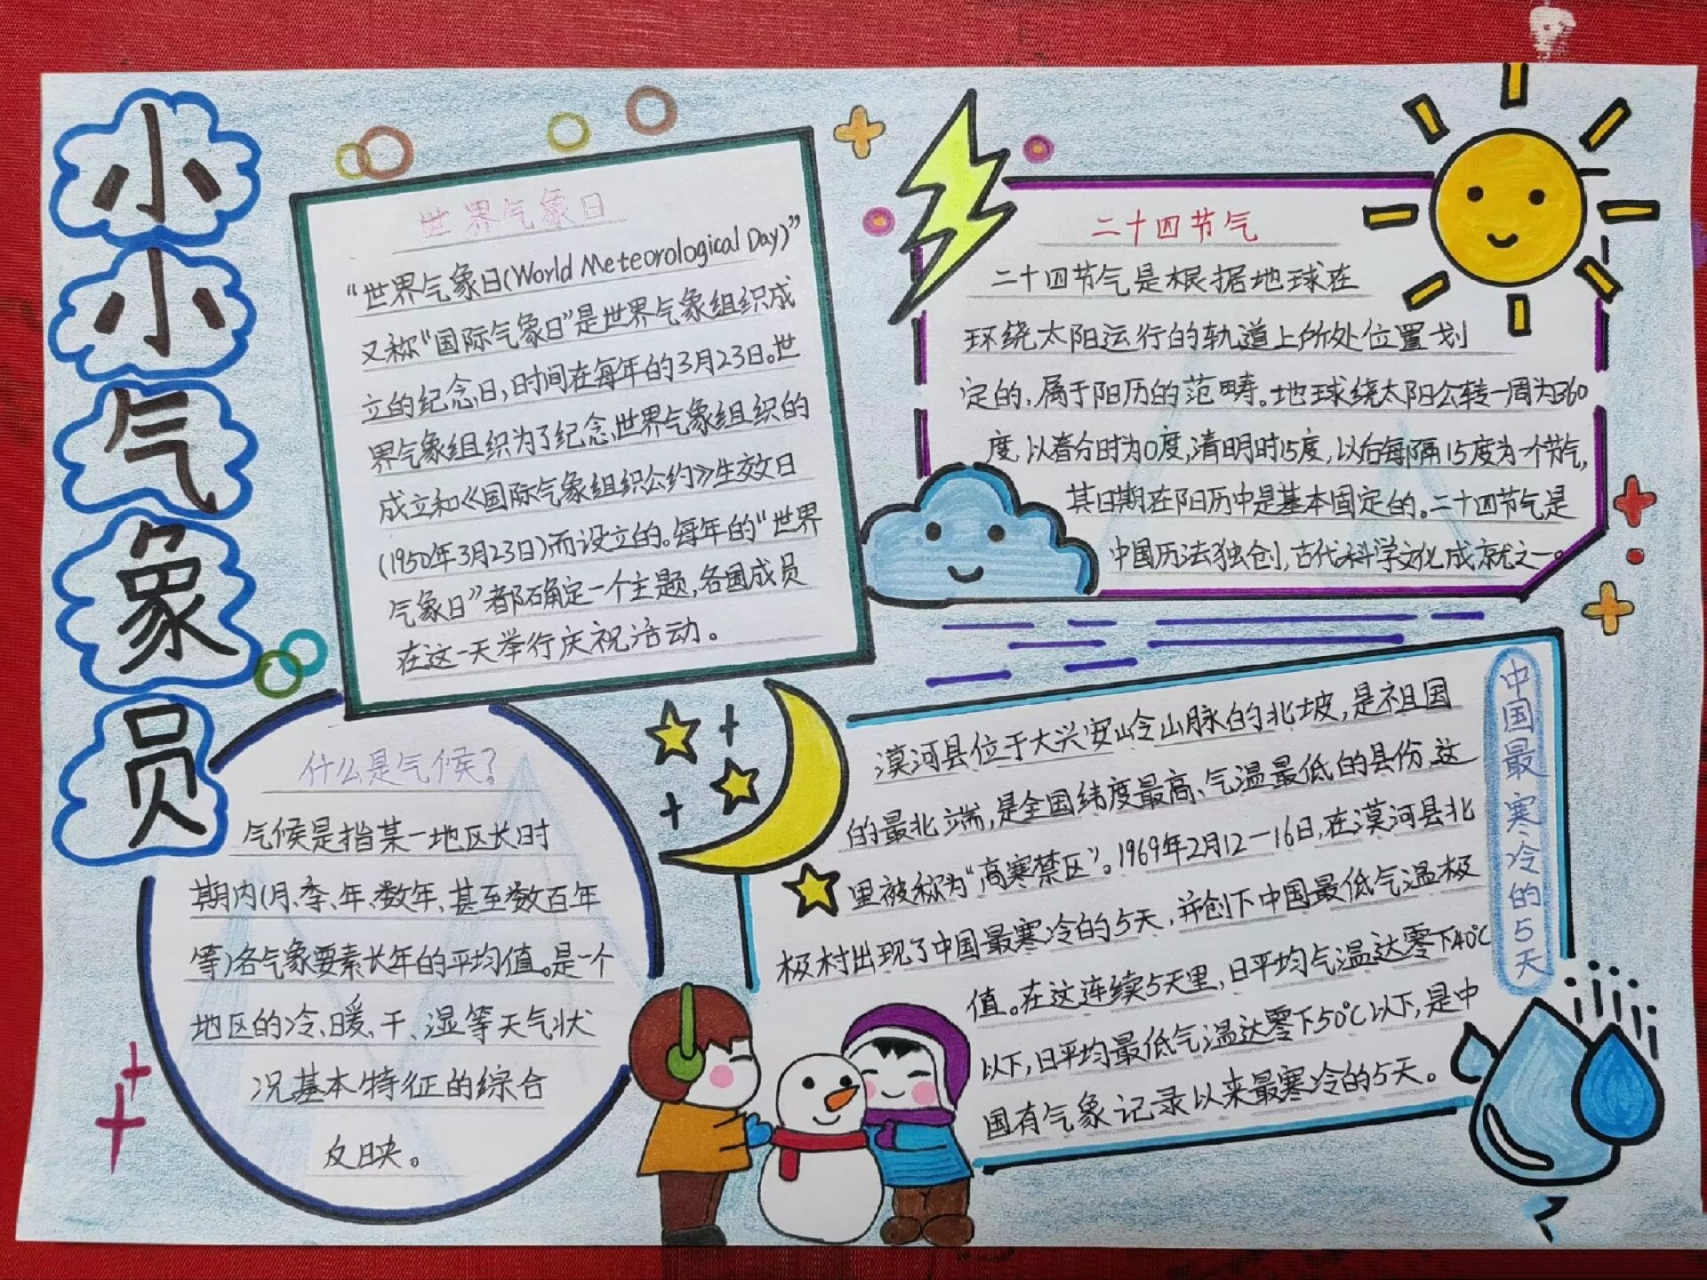 小小气象员
世界气象日
“世界气象日(World Meteorological Day)”
又称“国际气象日”是世界气象组织成
立的纪念日,时间在每年的3月23日。世
界气象组织为了纪念世界气象组织的
成立和《国际气象组织公约》生效日
(1950年3月23日)而设立的。每年的“世界
气象日”都确定一个主题,各国成员
在这一天举行庆祝活动。
二十四节气
二十四节气是根据地球在
环绕太阳运行的轨道上所处位置划
定的,属于阳历的范畴。地球绕太阳公转一周为360
度,以春分时为0度,清明时15度,以后每隔15度为一个节气,
其日期在阳历中是基本固定的。二十四节气是
中国历法独创,古代科学文化成就之一。
什么是气候?
气候是指某一地区长时
期内(月、季、年、数年、甚至数百年
等)各气象要素长年的平均值。是一个
地区的冷、暖、干、湿等天气状
况基本特征的综合
反映。
中国最寒冷的5天
漠河县位于大兴安岭山脉的北坡,是祖国
的最北端,是全国纬度最高、气温最低的县份,这
里被称为“高寒禁区”。1969年2月12—16日,在漠河县北
极村出现了中国最寒冷的5天,并创下中国最低气温极
值。在这连续5天里,日平均气温达零下40℃
以下,日平均最低气温达零下50℃以下,是中
国有气象记录以来最寒冷的5天。